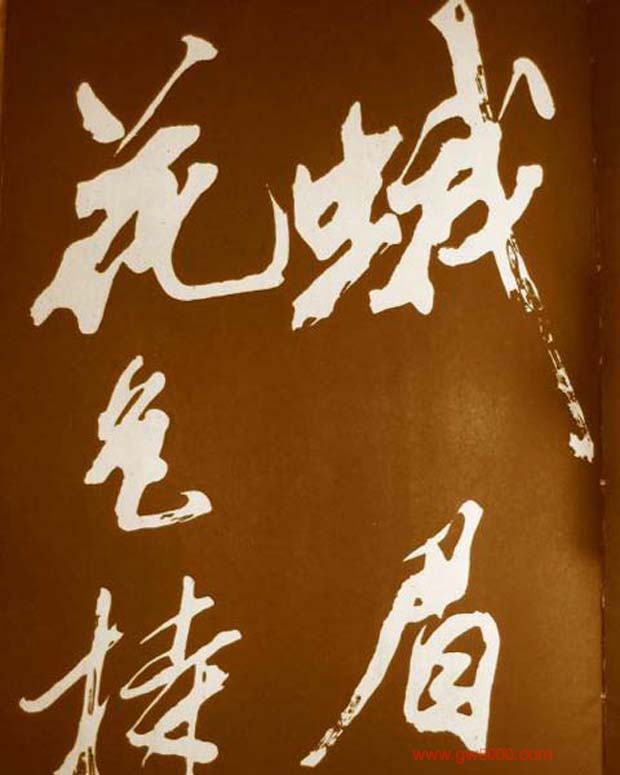 蛾眉
花色
www.gw5000.com